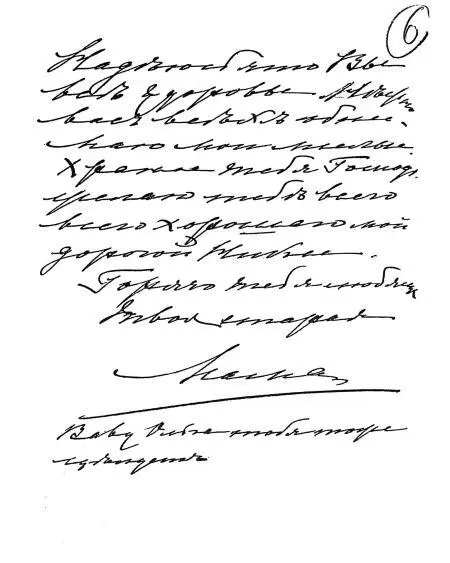 6
Надѣюсь что Вы
всѣ здоровы
васъ всѣхъ обни-
маю мои милые.
Храни тебя Господь
желаю тебѣ всего
всего хорошаго мой
дорогой Ники.
Горячо тебя любящ
твоя старая
Мама
Baby Ольга тебя тоже
цѣлуетъ